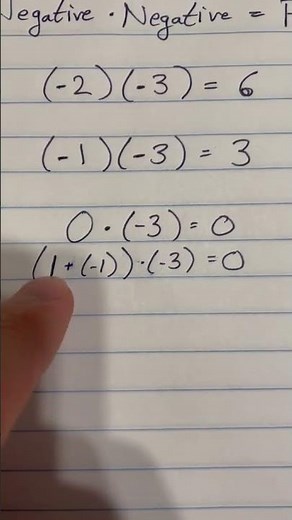 Negative · Negative = P
(-2)(-3) = 6
(-1)(-3) = 3
0 · (-3) = 0
(1 + (-1)) · (-3) = 0